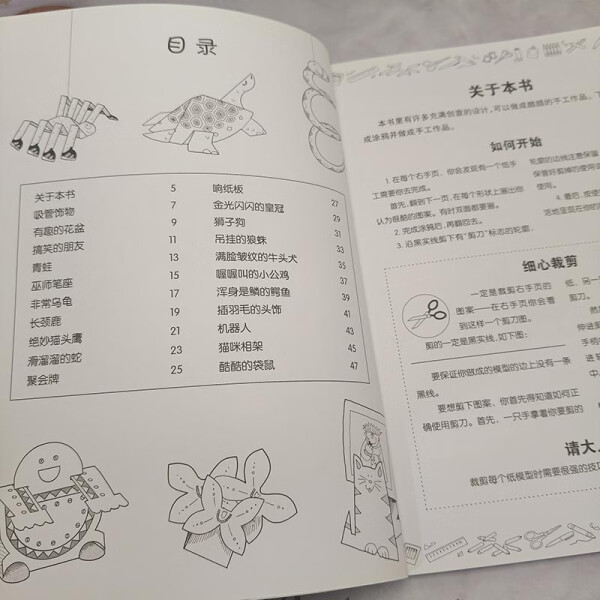 目录
关于本书 5
吸管饰物 7
有趣的花盆 9
搞笑的朋友 11
青蛙 13
巫师笔座 15
非常乌龟 17
长颈鹿 19
绝妙猫头鹰 21
滑溜溜的蛇 23
聚会牌 25
响纸板 27
金光闪闪的皇冠 29
狮子狗 31
吊挂的狼蛛 33
满脸皱纹的牛头犬 35
喔喔叫的小公鸡 37
浑身是鳞的鳄鱼 39
插羽毛的头饰 41
机器人 43
猫咪相架 45
酷酷的袋鼠 47
关于本书
本书里有许多充满创意的设计，可以做成酷酷的手工作品。下
成涂鸦并做成手工作品。
如何开始
1. 在每个右手页，你会发现有一个纸手
工需要你去完成。
首先，翻到下一页，在每个形状上画出你
认为很酷的图案。有时双面都要画。
2. 完成涂鸦后，再翻回去。
3. 沿黑实线剪下有“剪刀”标志的轮廓。
轮廓的边线注意保留
保管好剪掉的使用说
使用。
4. 最后，按
活地竖在你的
细心裁剪
一定是裁剪右手页的
图案——在右手页你会看
到这样一个剪刀图。
剪的一定是黑实线，如下图：
要保证你做成的模型的边上没有一条
黑线。
要想剪下图案，你首先得知道如何正
确使用剪刀。首先，一只手拿着你要剪的
纸，另一
剪刀。
然
伸进
手柄
进
中
请大人
裁剪每个纸模型时需要很强的技巧